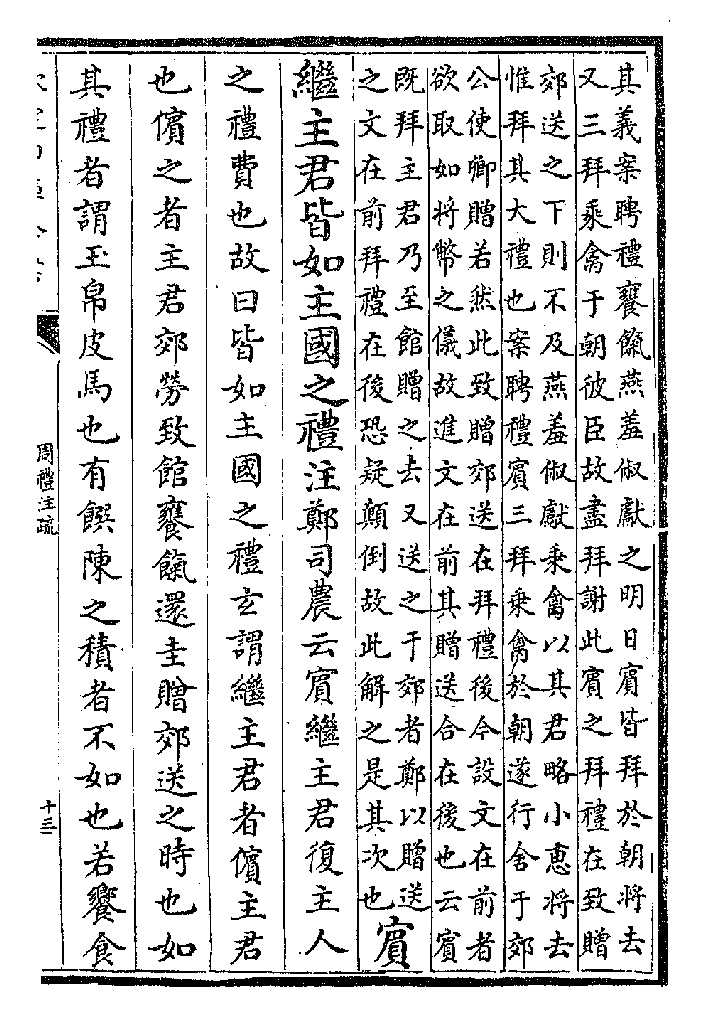 其義案聘禮饔餼燕羞俶獻之明日賓皆拜於朝將去
又三拜乘禽于朝彼臣故盡拜謝此賓之拜禮在致贈
郊送之下則不及燕羞俶獻乘禽以其君略小惠將去
惟拜其大禮也案聘禮賓三拜乘禽於朝遂行舍于郊
公使卿贈若然此致贈郊送在拜禮後今設文在前者
欲取如將幣之儀故進文在前其贈送合在後也云賓
既拜主君乃至館贈之去又送之于郊者鄭以贈送
之文在前拜禮在後恐疑顛倒故此解之是其次也
賓
繼主君皆如主國之禮注鄭司農云賓繼主君復主人
之禮費也故曰皆如主國之禮玄謂繼主君者儐主君
也儐之者主君郊勞致館饔餼還圭贈郊送之時也如
其禮者謂玉帛皮馬也有饌陳之積者不如也若饗食
周禮注疏
十三